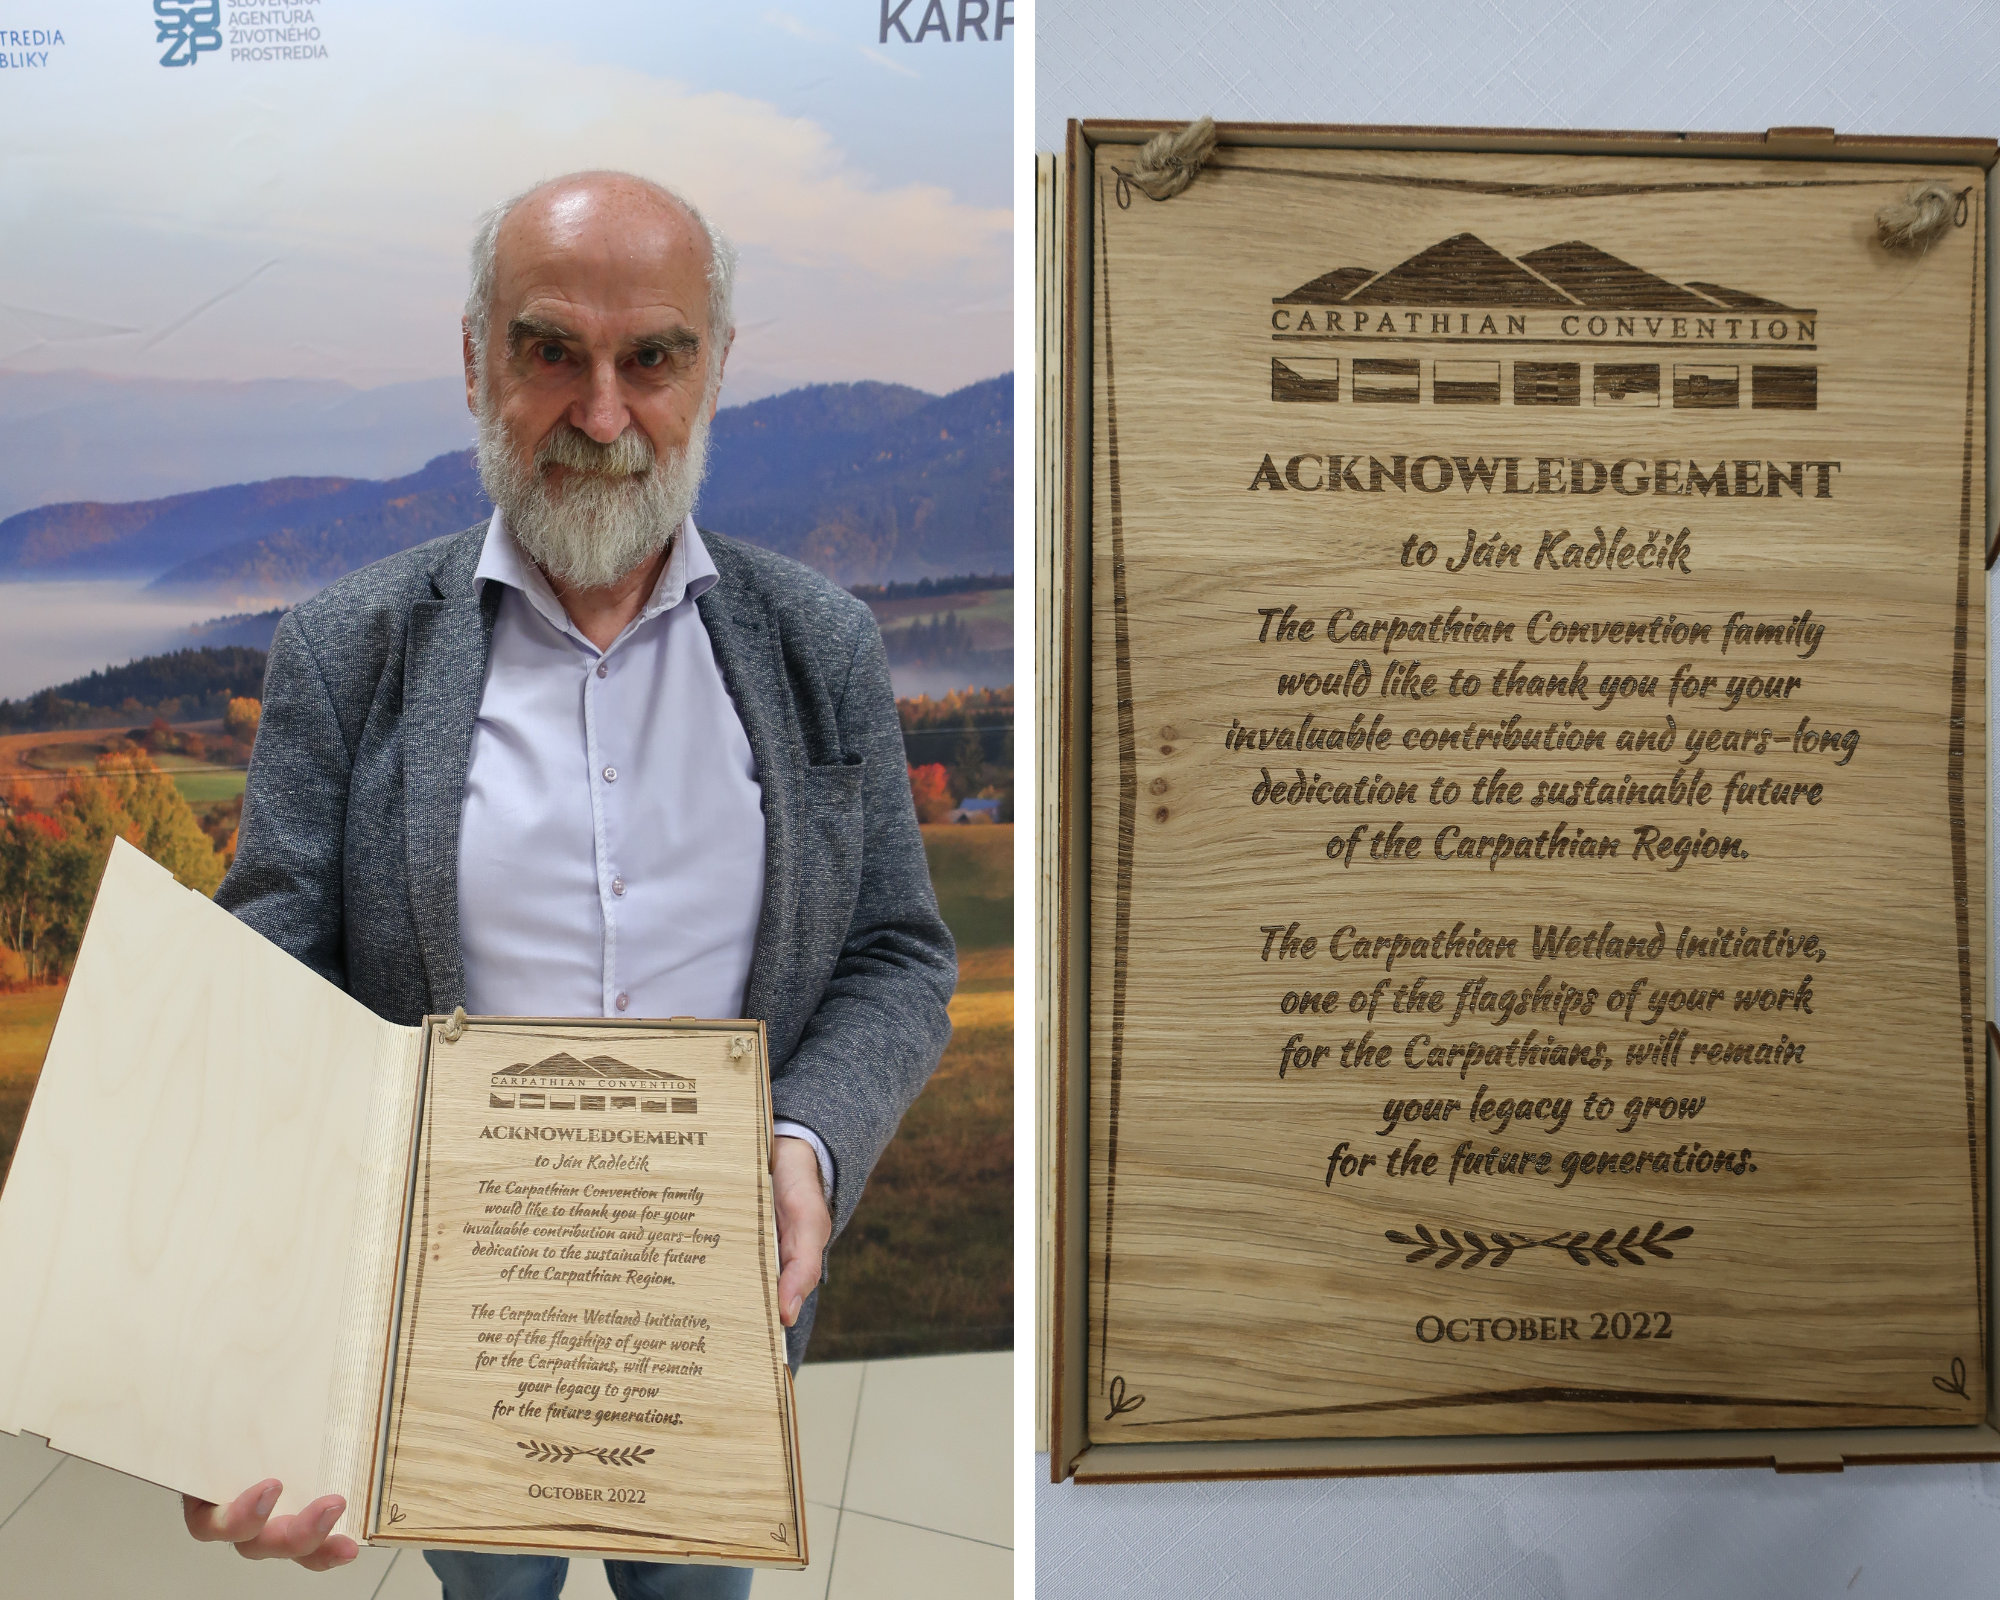 TREDIA
BLIKY
sa
ZP
SLOVENSKÁ
AGENTURA
ŽIVOTNÉHO
PROSTREDIA
KARP
CARPATHIAN CONVENTION
ACKNOWLEDGEMENT
to Ján Kadlečik
The Carpathian Convention family
would like to thank you for your
invaluable contribution and years-long
dedication to the sustainable future
of the Carpathian Region.
The Carpathian Wetland Initiative,
one of the flagships of your work
for the Carpathians, will remain
your legacy to grow
for the future generations.
OCTOBER 2022
CARPATHIAN CONVENTION
ACKNOWLEDGEMENT
to Ján Kadlečik
The Carpathian Convention family
would like to thank you for your
invaluable contribution and years-long
dedication to the sustainable future
of the Carpathian Region.
The Carpathian Wetland Initiative,
one of the flagships of your work
for the Carpathians, will remain
your legacy to grow
for the future generations.
OCTOBER 2022